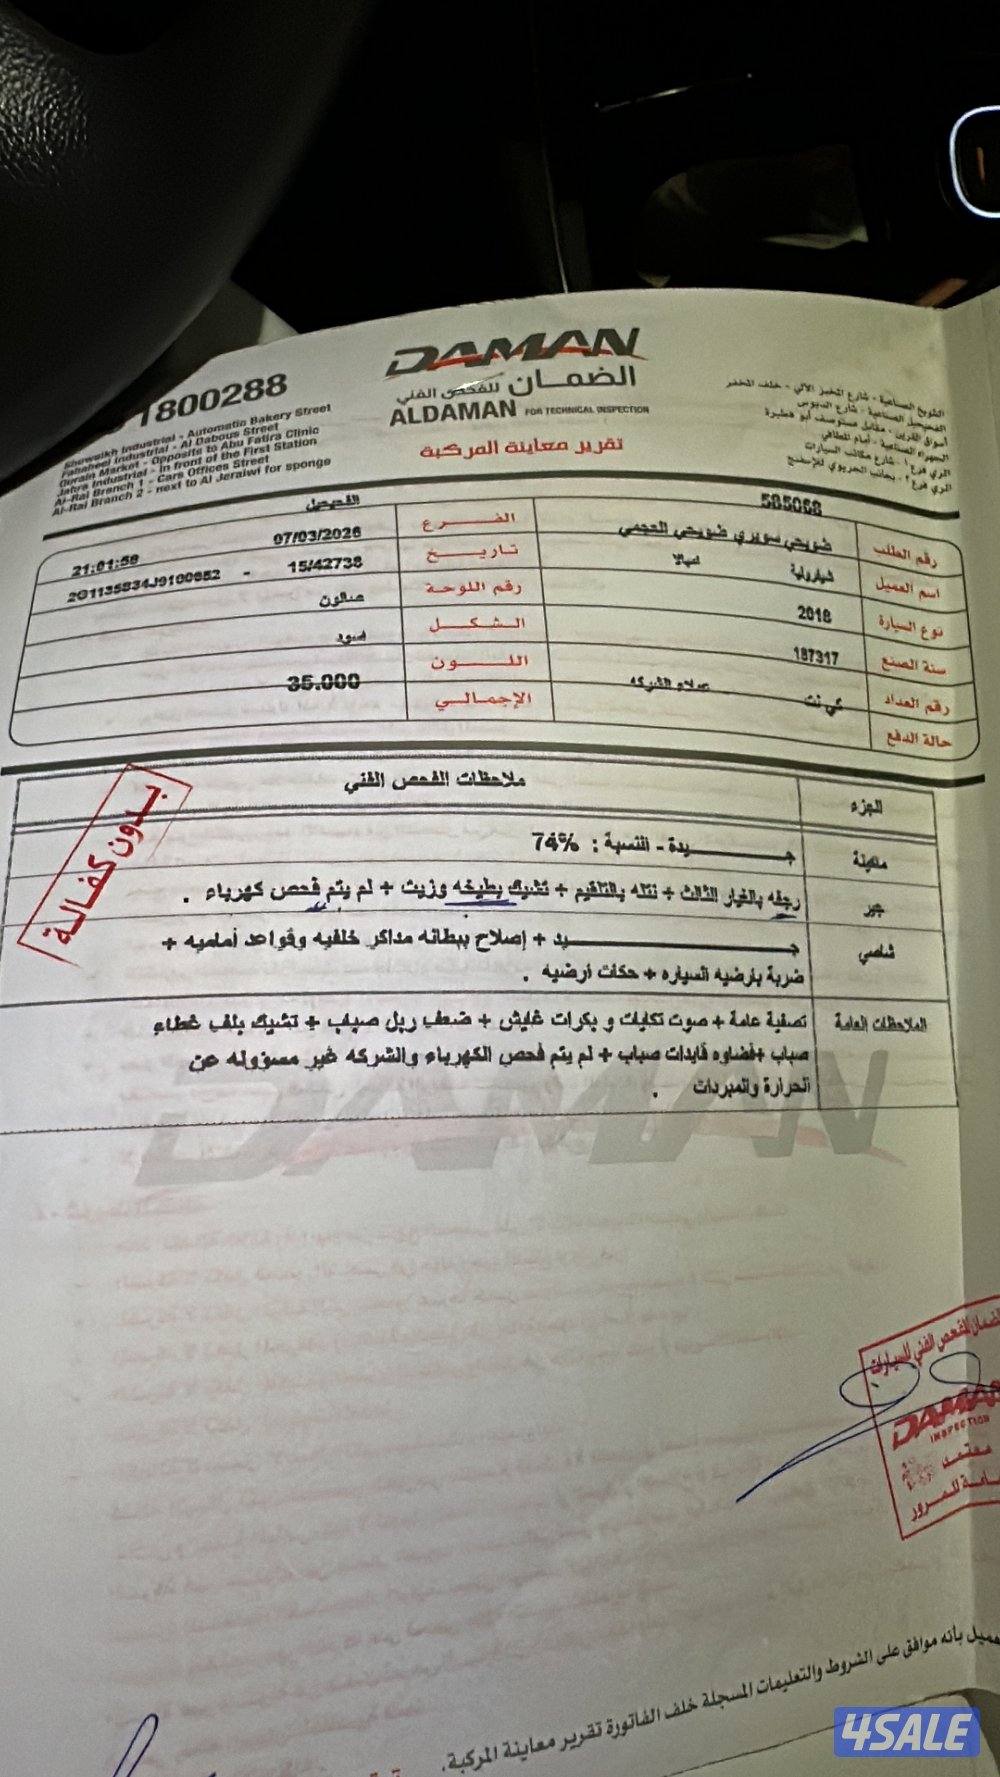 DAMAN
الضمان للفحص الفني
ALDAMAN FOR TECHNICAL INSPECTION
تقرير معاينة المركبة
1800288
Shuwaikh Industrial - Automatic Bakery Street
Fahaheel Industrial - Al Dabous Street
Qurain Market - Opposite to Abu Fatira Clinic
Jahra Industrial - In front of the First Station
Al-Rai Branch 1 - Cars Offices Street
Al-Rai Branch 2 - next to Al Jeraiwi for sponge
الشويخ الصناعية - شارع المخبز الآلي - خلف المخفر
الفحيحيل الصناعية - شارع الدبوس
أسواق القرين - مقابل مستوصف أبو فطيرة
الجهراء الصناعية - أمام المطافي
الري فرع ١ - شارع مكاتب السيارات
الري فرع ٢ - بجانب الجريوي للإسفنج
رقم الطلب 585068 الفرع الفحيحيل
اسم العميل ضويحي سويري ضويحي العجمي تاريخ 07/03/2026 21:01:58
نوع السيارة شيفروليه امبالا رقم اللوحة 15/42738 - 2G1135S34J9100652
سنة الصنع 2018 الشكل صالون
رقم العداد 187317 اللون اسود
حالة الدفع كي نت عملاء الشركه الإجمالي 35.000
الجزء ملاحظات الفحص الفني
بدون كفالة
ماكينة جيدة - النسبة : 74%
جير رجفه بالغيار الثالث + نتله بالتلقيم + تشيك بطيخه وزيت + لم يتم فحص كهرباء .
شاصي جيد + إصلاح ببطانه مداكر خلفيه وقواعد أماميه +
ضربة بأرضيه السياره + حكات أرضيه .
الملاحظات العامة تصفية عامة + صوت تكايات و بكرات قايش + ضعف ربل صباب + تشيك بلف غطاء
صباب +فضاوه قايدات صباب + لم يتم فحص الكهرباء والشركه غير مسؤوله عن
الحرارة والمبردات .
الضمان للفحص الفني للسيارات
DAMAN
INSPECTION
معتمد
العميل بأنه موافق على الشروط والتعليمات المسجلة خلف الفاتورة تقرير معاينة المركبة.
4SALE